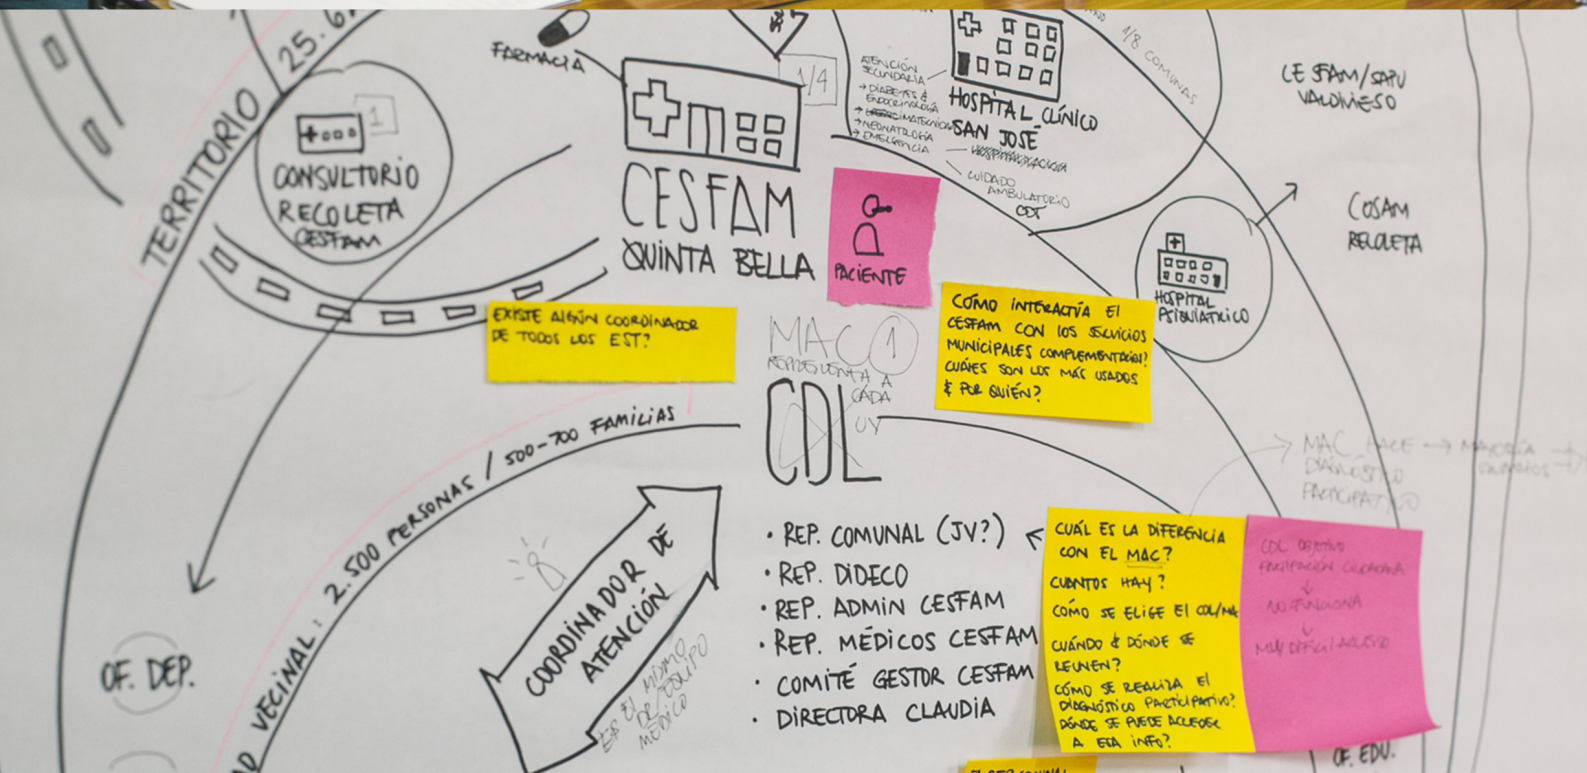 TERRITORIO 25.6
FARMACIA
1
CONSULTORIO
RECOLETA
CESFAM
1/4
CESFAM
QUINTA BELLA
PACIENTE
ATENCIÓN
SECUNDARIA
→ DIABETES &
ENDOCRINOLOGÍA
→ NEONATOLOGÍA
→ EMERGENCIA
HOSPITAL CLÍNICO
SAN JOSÉ
CUIDADO
AMBULATORIO
CDT
1/8 COMUNAS
CESFAM/SAPU
VALDIVIESO
COSAM
RECOLETA
HOSPITAL
PSIQUIÁTRICO
EXISTE ALGÚN COORDINADOR
DE TODOS LOS EST?
CÓMO INTERACTÚA EL
CESFAM CON LOS SERVICIOS
MUNICIPALES COMPLEMENTARIOS?
CUÁLES SON LOS MÁS USADOS
& POR QUIÉN?
MAC 1
REPRESENTA A
CADA
UV
CDL
VECINAL: 2.500 PERSONAS / 500-700 FAMILIAS
COORDINADOR DE
ATENCIÓN
ES EL MISMO
DR/EQUIPO
MÉDICO
OF. DEP.
• REP. COMUNAL (JV?)
• REP. DIDECO
• REP. ADMIN CESFAM
• REP. MÉDICOS CESFAM
• COMITÉ GESTOR CESFAM
• DIRECTORA CLAUDIA
CUÁL ES LA DIFERENCIA
CON EL MAC?
CUANTOS HAY?
CÓMO SE ELIGE EL CDL/MA
CUÁNDO & DÓNDE SE
REUNEN?
CÓMO SE REALIZA EL
DIAGNÓSTICO PARTICIPATIVO?
DÓNDE SE PUEDE ACCEDER
A ESA INFO?
MAC HACE →
DIAGNÓSTICO
PARTICIPATIVO
CDL OBJETIVO
PARTICIPACIÓN CIUDADANA
↓
NO FUNCIONA
↓
MUY DIFÍCIL ACCESO
OF. EDU.